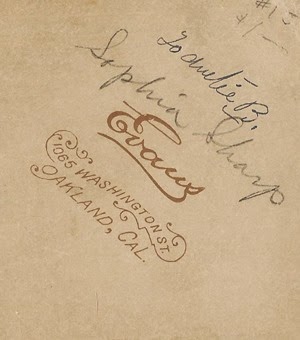 #1–
$1–
To Auntie B.
Sophia Sharp
Evans
1065 WASHINGTON ST.
OAKLAND, CAL.